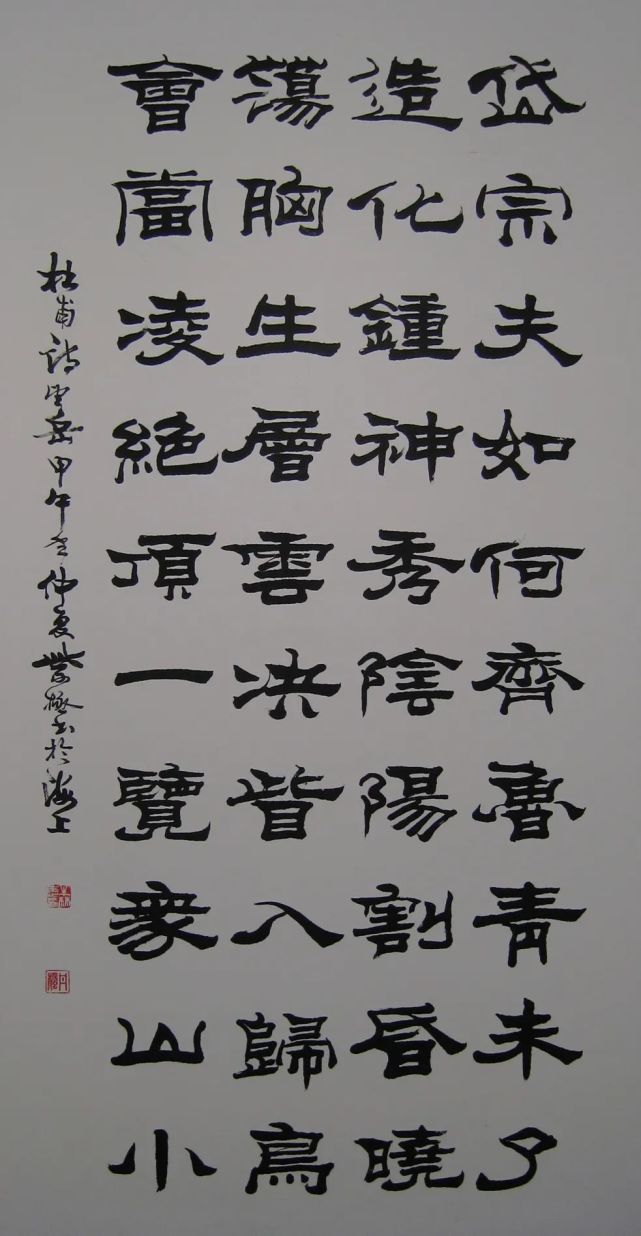 岱宗夫如何齊魯青未了
造化鍾神秀陰陽割昏曉
蕩胸生層雲决眥入歸鳥
會當凌絕頂一覽衆山小
杜甫詩望岳甲午年仲夏紫極書於海上